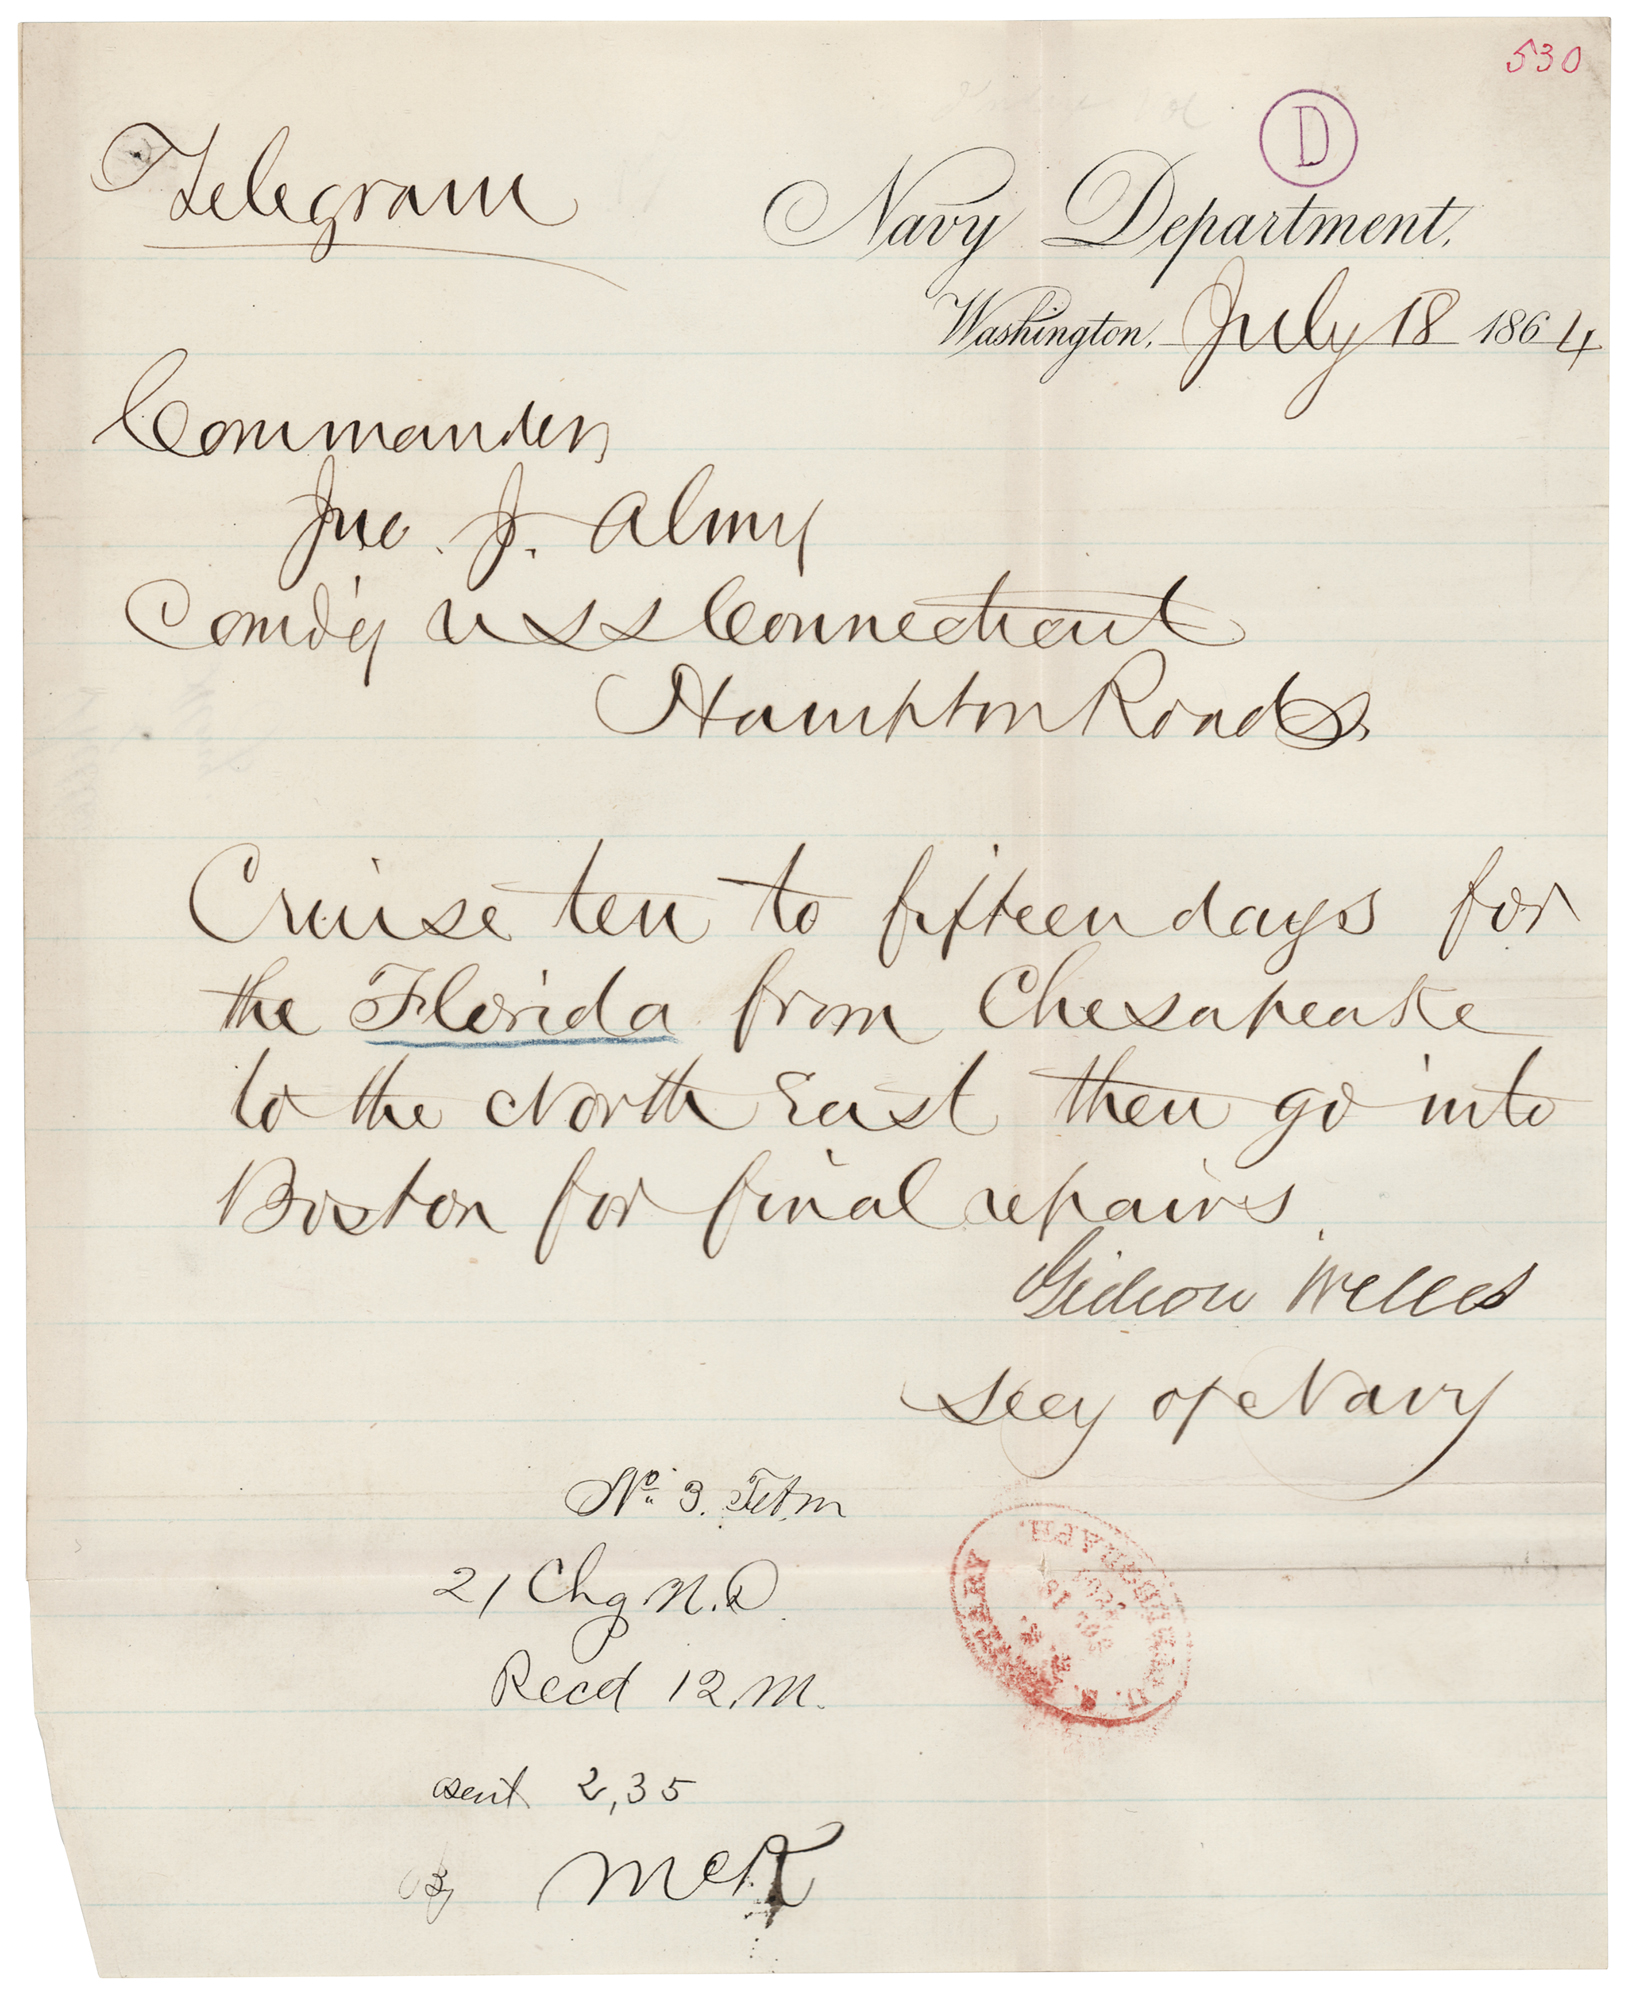 530
D
Telegram
Navy Department,
Washington, July 18 1864
Commander
Jno. J. Almy
Comd'g U S S Connecticut
Hampton Roads
Cruise ten to fifteen days for
the Florida from Chesapeake
to the North East then go into
Boston for final repairs.
Gideon Welles
Secy of Navy
No. 3.
21 Chg N.D.
Recd 12, M.
sent 2,35
By McK
U. S. MILITARY TELEGRAPH.